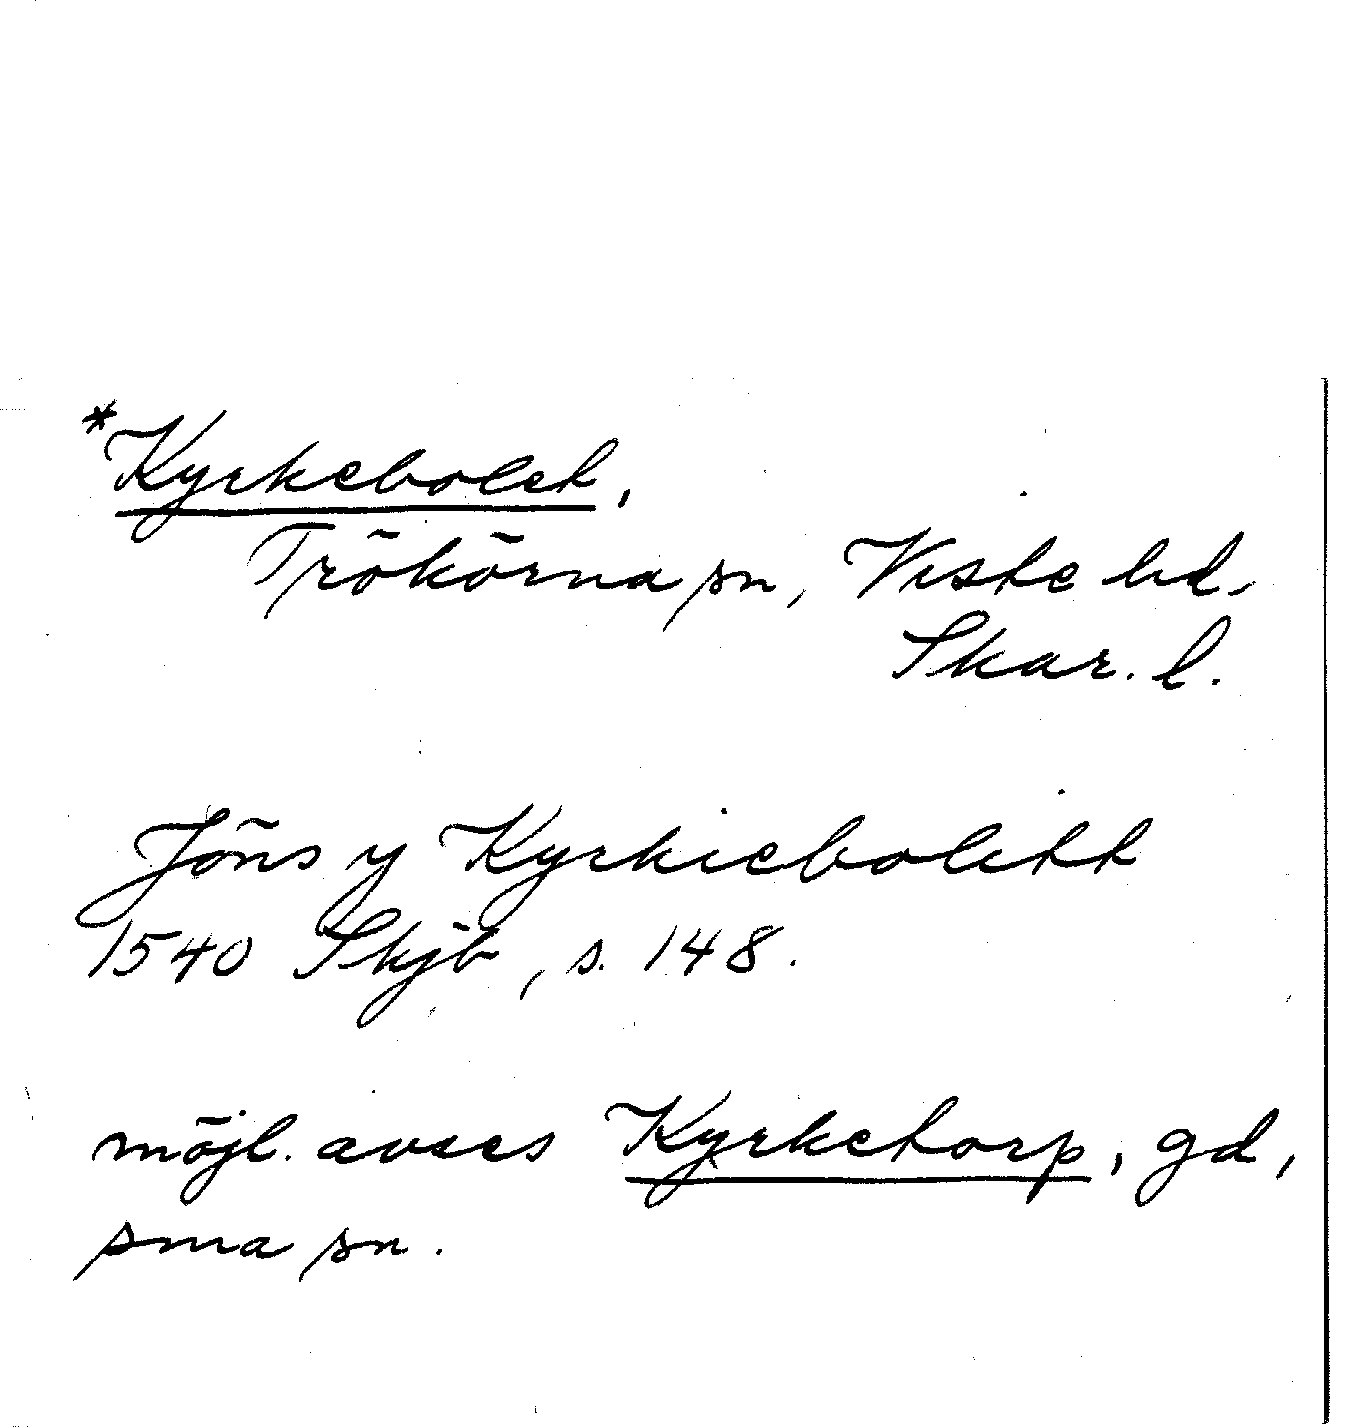 *Kyrkebolet,
Trökörna sn, Viste hd,
Skar. l.
Jöns y Kyrkiebolitt
1540 Skjb, s. 148.
möjl. avses Kyrketorp, gd,
sma sn.